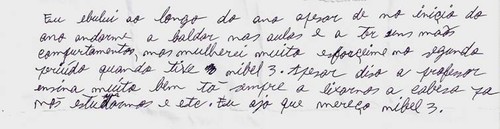 Eu ebului ao longo do ano apesor de no inicio do
ano andorme a baldar nas aulas e a ter uns maos
comportamentos, mas mulherei muito esforceime no segundo
periudo quando tive nibel 3. Apesar diso a professor
ensina muito bem ta sempre a lixarnos a cabesa pa
nós estudarmos e etc. Eu ajo que mereço nibel 3.